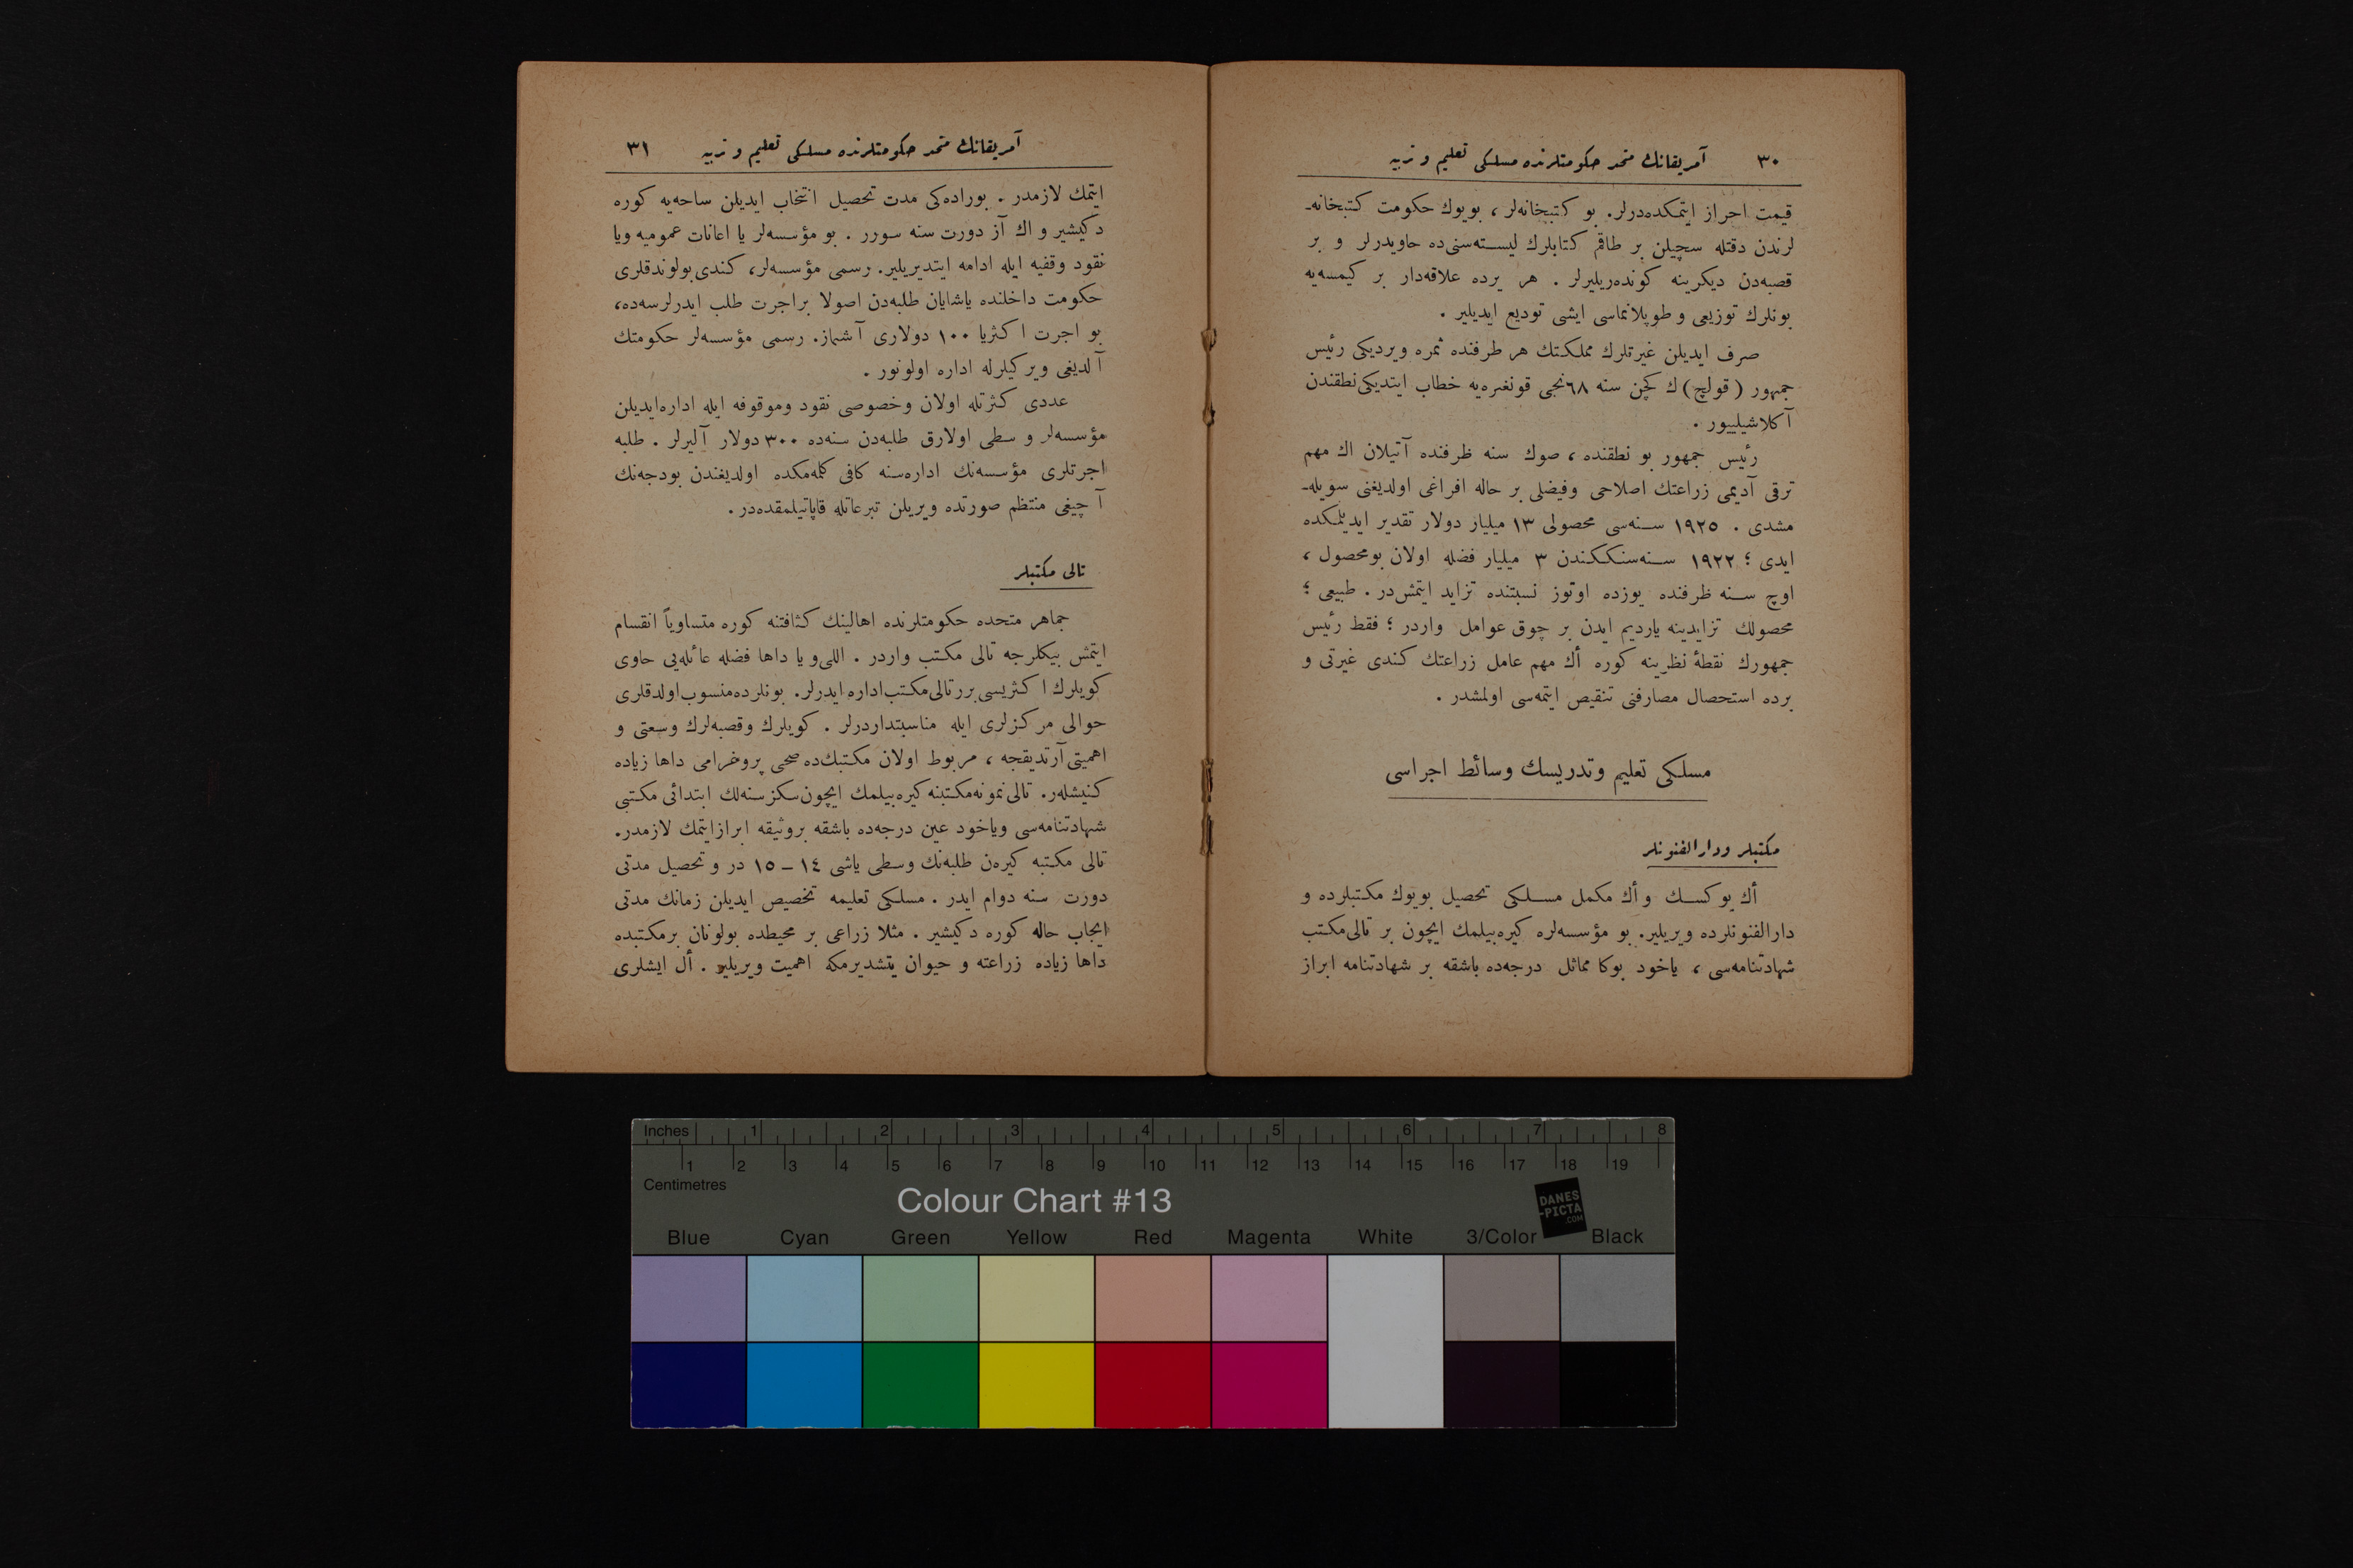 ٣٠ آمريقانك متحد حكومتلرنده مسلكى تعليم و تربيه
قيمت احراز ايتمكده‌درلر. بو كتبخانه‌لر ، بويوك حكومت كتبخانه‌ـ
لرندن دقتله سچيلن بر طاقم كتابلرك ليسته‌سنى‌ده حاويدرلر و بر
قصبه‌دن ديكرينه كونده‌ريليرلر . هر يرده علاقه‌دار بر كيمسه‌يه
بونلرك توزيعى و طوپلانماسى ايشى توديع ايديلير .
صرف ايديلن غيرتلرك مملكتك هر طرفنده ثمره ويرديكى رئيس
جمهور ( قولچ ) ك كچن سنه ٦٨نجى قونغره‌يه خطاب ايتديكى نطقندن
آكلاشيلييور .
رئيس جمهور بو نطقنده ، صوك سنه ظرفنده آتيلان اك مهم
ترقى آديمى زراعتك اصلاحى وفيضلى بر حاله افراغى اولديغنى سويله‌ـ
مشدى . ١٩٢٥ سنه‌سى محصولى ١٣ ميليار دولار تقدير ايديلمكده
ايدى ؛ ١٩٢٢ سنه‌سنككندن ٣ ميليار فضله اولان بومحصول ،
اوچ سنه ظرفنده يوزده اوتوز نسبتنده تزايد ايتمش‌در . طبيعى ؛
محصولك تزايدينه يارديم ايدن بر چوق عوامل واردر ؛ فقط رئيس
جمهورك نقطهٔ نظرينه كوره أك مهم عامل زراعتك كندى غيرتى و
برده استحصال مصارفنى تنقيص ايتمه‌سى اولمشدر .
مسلكى تعليم وتدريسك وسائط اجراسى
مكتبلر ودارالفنونلر
أك يوكسك و أك مكمل مسلكى تحصيل بويوك مكتبلرده و
دارالفنونلرده ويريلير. بو مؤسسه‌لره كيره‌بيلمك ايچون بر تالى‌مكتب
شهادتنامه‌سى ، ياخود بوكا مماثل درجه‌ده باشقه بر شهادتنامه ابراز
آمريقانك متحد حكومتلرنده مسلكى تعليم و تربيه ٣١
ايتمك لازمدر . بوراده‌كى مدت تحصيل انتخاب ايديلن ساحه‌يه كوره
دكيشير و اك آز دورت سنه سورر . بو مؤسسه‌لر يا اعانات عموميه ويا
نقود وقفيه ايله ادامه ايتديريلير. رسمى مؤسسه‌لر، كندى‌بولوندقلرى
حكومت داخلنده ياشايان طلبه‌دن اصولا براجرت طلب ايدرلرسه‌ده،
بو اجرت اكثريا ١٠٠ دولارى آشماز. رسمى مؤسسه‌لر حكومتك
آلديغى ويركيلرله اداره اولونور .
عددى كثرتله اولان وخصوصى نقود وموقوفه ايله اداره‌ايديلن
مؤسسه‌لر و سطى اولارق طلبه‌دن سنه‌ده ٣٠٠ دولار آليرلر . طلبه
اجرتلرى مؤسسه‌نك اداره‌سنه كافى كلمه‌مكده اولديغندن بودجه‌نك
آچيغى منتظم صورتده ويريلن تبرعاتله قاپاتيلمقده‌در .
تالى مكتبلر
جماهر متحده حكومتلرنده اهالينك كثافتنه كوره متساوياً انقسام
ايتمش بيكلرجه تالى مكتب واردر . اللى‌و يا داها فضله عائله‌يى حاوى
كويلرك اكثريسى برر تالى‌مكتب‌اداره‌ايدرلر. بونلرده‌منسوب‌اولدقلرى
حوالى مركزلرى ايله مناسبتداردرلر . كويلرك وقصبه‌لرك وسعتى و
اهميتى آرتديقجه ، مربوط اولان مكتبك‌ده صحى پروغرامى داها زياده
كنيشله‌ر. تالى نمونه‌مكتبنه كيره‌بيلمك ايچون‌سكزسنه‌لك ابتدائى مكتبى
شهادتنامه‌سى وياخود عين درجه‌ده باشقه بروثيقه ابرازايتمك لازمدر.
تالى مكتبه كيره‌ن طلبه‌نك وسطى ياشى ١٤ – ١٥ در و تحصيل مدتى
دورت سنه دوام ايدر . مسلكى تعليمه تخصيص ايديلن زمانك مدتى
ايجاب حاله كوره دكيشير . مثلا زراعى بر محيطده بولونان برمكتبده
داها زياده زراعته و حيوان يتشديرمكه اهميت ويريلير . أل ايشلرى
Inches 1 2 3 4 5 6 7 8
1 2 3 4 5 6 7 8 9 10 11 12 13 14 15 16 17 18 19
Centimetres
Colour Chart #13
DANES
-PICTA
.COM
Blue Cyan Green Yellow Red Magenta White 3/Color Black